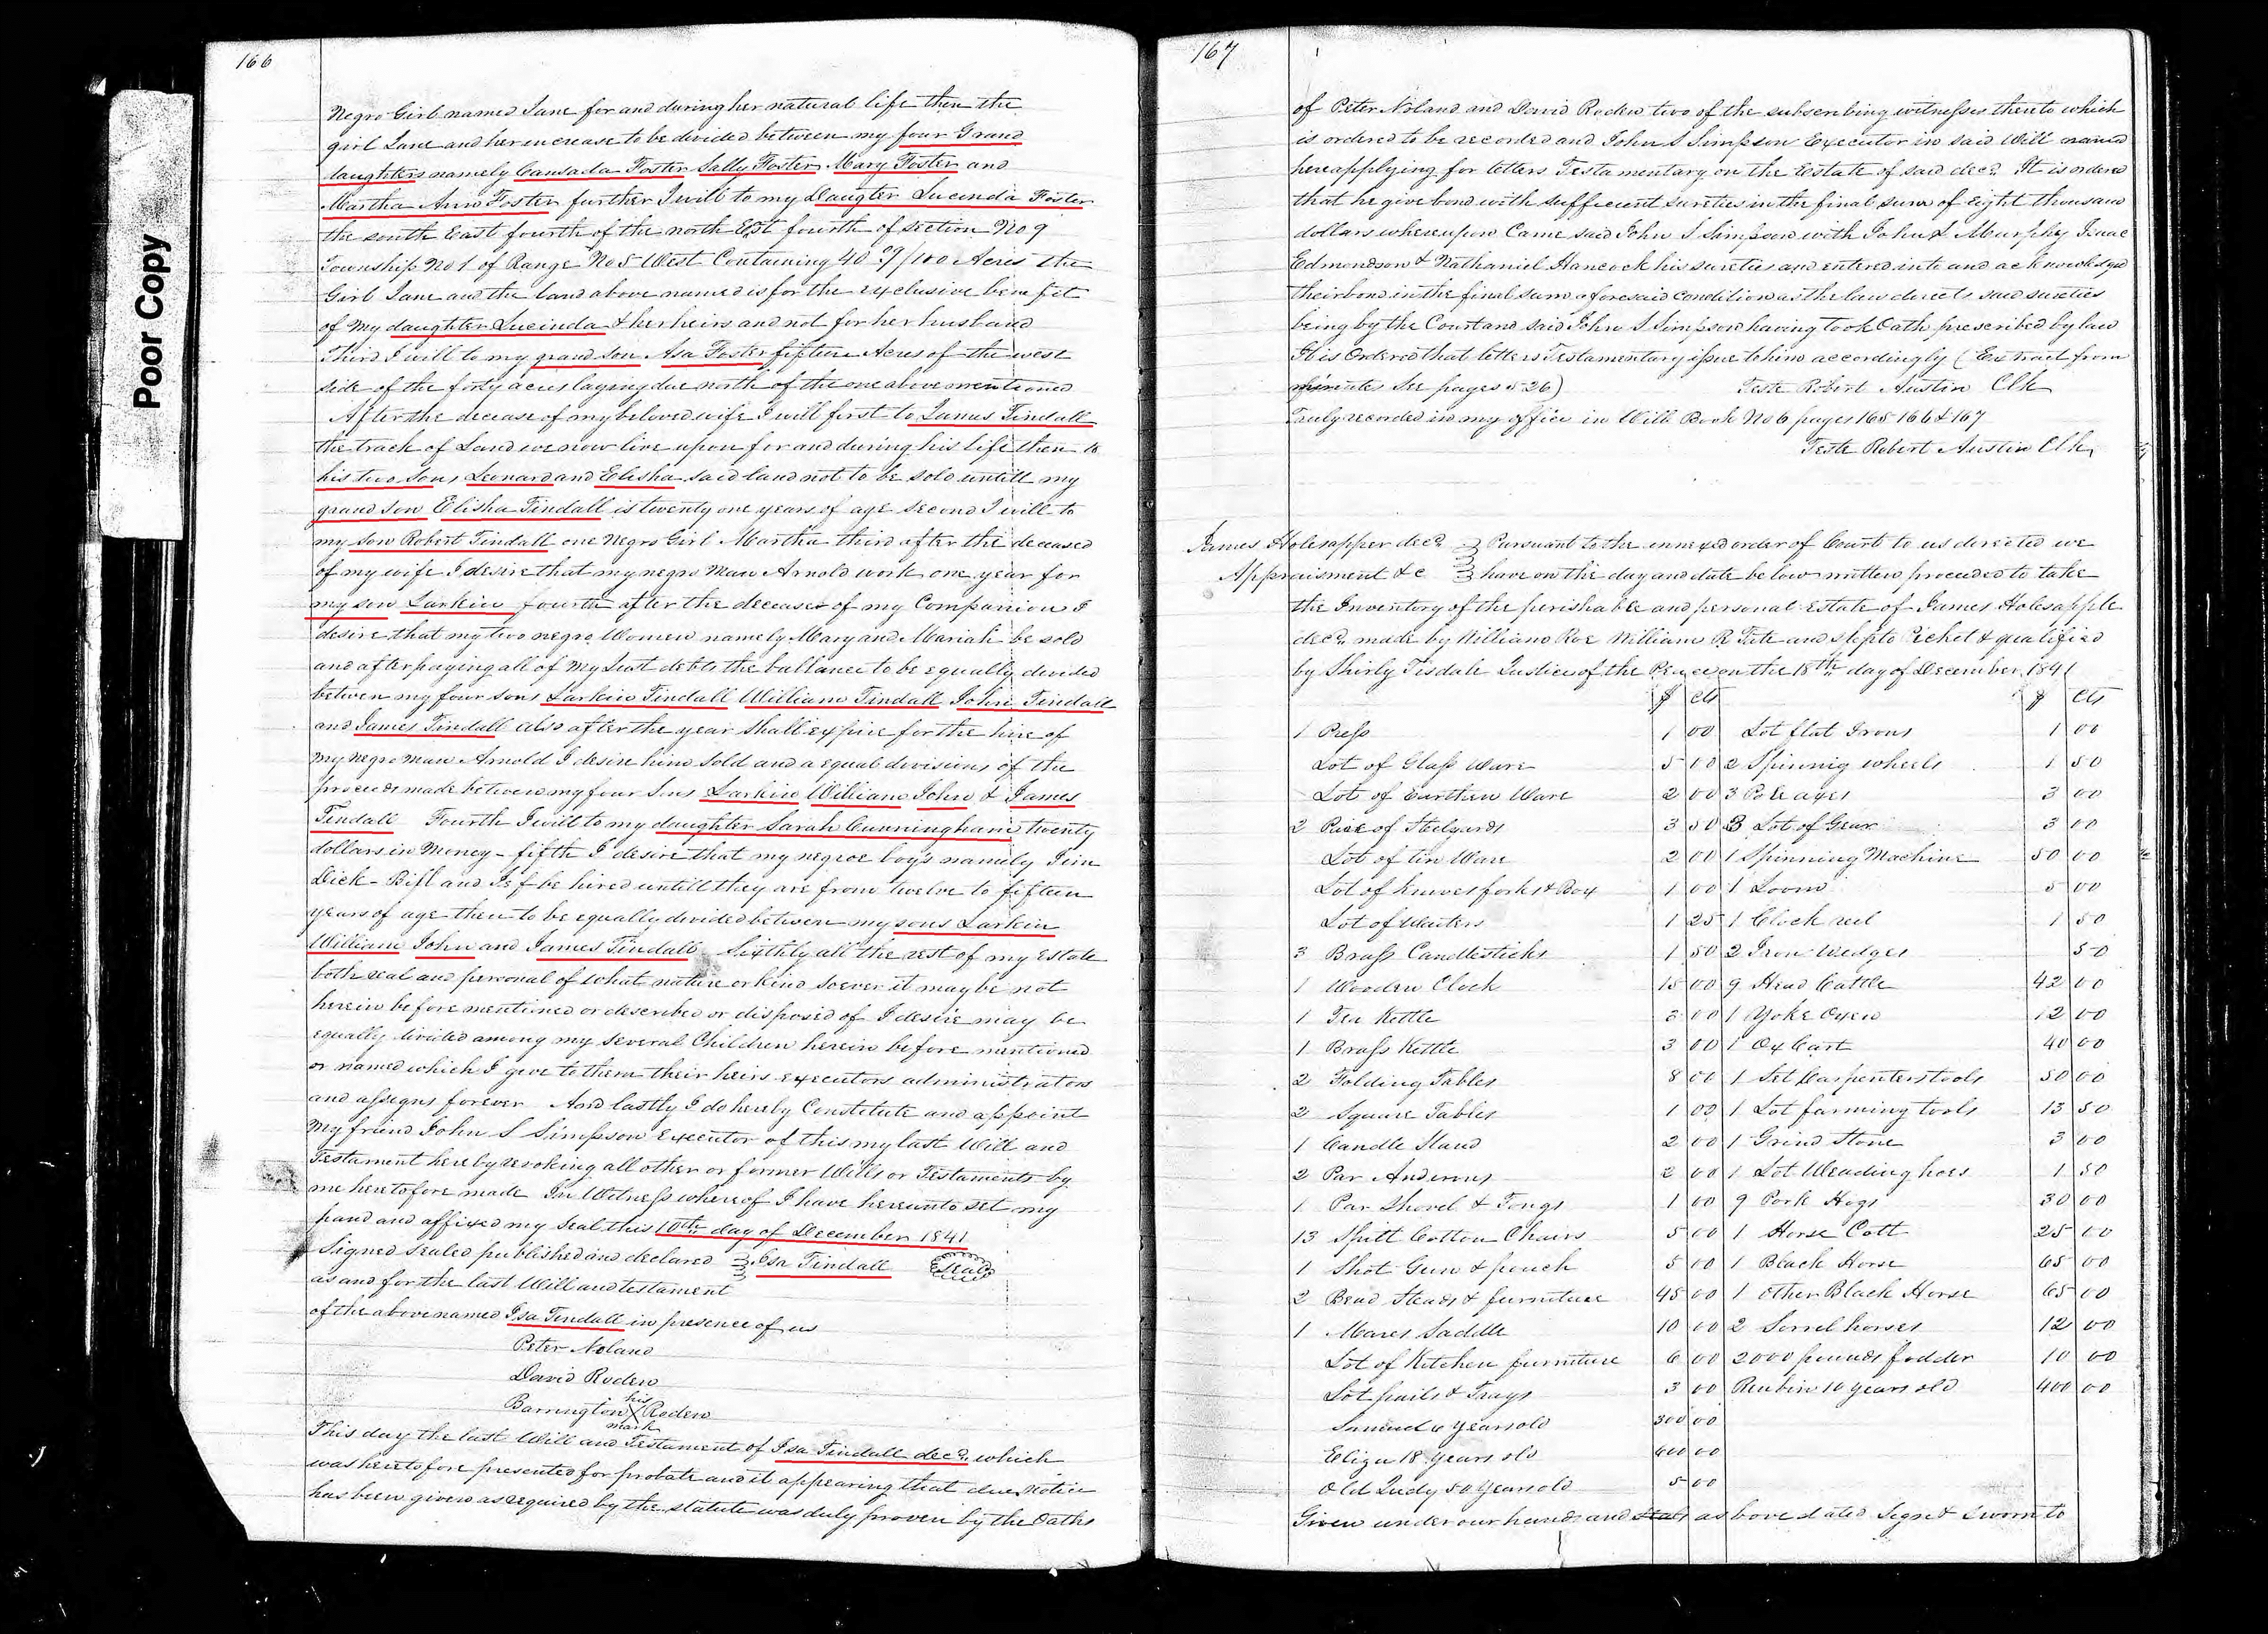 Poor Copy
166
Negro Girl named Jane for and during her natural life then the
girl Jane and her increase to be devided between my four Grand
daughters namely Cansada Foster Sally Foster Mary Foster and
Martha Ann Foster further I will to my Daugter Lucinda Foster
the south East fourth of the north East fourth of section No 9
Township No 1 of Range No 5 West Containing 40 09/100 Acres the
Girl Jane and the land above named is for the exclusive benefit
of my daughter Lucinda & her heirs and not for her husband
Third I will to my grand son Asa Foster fifteen Acres of the west
side of the forty acres laying due north of the one above mentioned
After the decease of my beloved wife I will first to James Tindall
the track of Land we now live upon for and during his life then to
his two sons Leonard and Elisha said land not to be sold untill my
grand son Elisha Tindall is twenty one years of age second I will to
my son Robert Tindall one Negro Girl Martha third after the deceased
of my wife I desire that my negro man Arnold work one year for
my son Larkin fourth after the deceases of my Companion I
desire that my two negro Women namely Mary and Mariah be sold
and after paying all of my Just debts the ballance to be equally devided
between my four sons Larkin Tindall William Tindall John Tindall
and James Tindall also after the year shall expire for the hire of
my negro man Arnold I desire him sold and a equal divisions of the
proceeds made between my four Sons Larkin William John & James
Tindall Fourth I will to my daughter Sarah Cunningham twenty
dollars in Money - fifth I desire that my negroe boys namely Jim
Dick - Bill and be hired untill they are from twelve to fifteen
years of age then to be equally devided between my sons Larkin
William John and James Tindall Sixthly all the rest of my Estate
both real and personal of what nature or kind soever it may be not
herein before mentioned or described or disposed of I desire may be
equally devided among my several Children herein before mentioned
or named which I give to them their heirs executors administrators
and assigns forever And lastly I do hereby Constitute and appoint
My friend John S Simpson Executor of this my last Will and
Testament hereby revoking all other or former Wills or Testaments by
me heretofore made In Witness whereof I have hereunto set my
hand and affixed my seal this 10th day of December 1841
Signed sealed published and declared Isa Tindall Seal
as and for the last Will and testament
of the above named Isa Tindall in presence of us
Peter Noland
David Roden
his
Barrington X Roden
mark
This day the last Will and Testament of Isa Tindall decd. which
was heretofore presented for probate and it appearing that due notice
has been given as required by the statute was duly proven by the Oaths
167
of Peter Noland and David Roden two of the subscribing witnesses thereto which
is ordered to be recorded and John S Simpson Executor in said Will named
here applying for letters Testamentary on the Estate of said decd. It is ordered
that he give bond with sufficient sureties in the final sum of Eight thousand
dollars whereupon Came said John S Simpson with John S Murphy Isaac
Edmondson & Nathaniel Hancock his sureties and entered into and acknowledged
their bond in the final sum aforesaid condition as the law directs said sureties
being by the Court and said John S Simpson having took Oath prescribed by law
It is Ordered that letters Testamentary issue to him accordingly (Extract from
minutes See pages 526) Teste Robert Austin Clk
Truly recorded in my office in Will Book No 6 pages 165 166 & 167
Teste Robert Austin Clk,
James Holesapper decd. Pursuant to the annexed order of Court to us directed we
Appraisment &c have on the day and date below written proceeded to take
the Inventory of the perishable and personal Estate of James Holesapple
decd. made by William Roe William R Tate and Pickel & qualified
by Shirly Tisdale Justice of the Peace on the 18th day of December 1841
$ cts $ Cts
1 Press 1 00 Lot flat Irons 1 00
Lot of Glass Ware 5 00 2 Spinnig wheels 1 50
Lot of Earthen Ware 2 00 3 Pole axes 3 00
2 Paire of Stelyards 3 50 3 Lot of Gear 3 00
Lot of tin Ware 2 00 1 Spinning Machine 50 00
Lot of knives forks & Box 1 00 1 Loom 5 00
Lot of Waiters 1 25 1 Clock reel 1 50
3 Brass Candlesticks 1 50 2 Iron Wedges 50
1 Wooden Clock 15 00 9 Head Cattle 42 00
1 Tea Kettle 3 00 1 Yoke Oxen 12 00
1 Brass Kettle 3 00 1 Ox Cart 40 00
2 Folding Tables 8 00 1 Set Carpenters tools 50 00
2 Square Tables 1 00 1 Lot farming tools 13 50
1 Candle Stand 2 00 1 Grind Stone 3 00
2 Par Andirons 2 00 1 Lot Weading hoes 1 50
1 Par Shovel & Tongs 1 00 9 Pork Hogs 30 00
13 Split Bottom Chairs 5 00 1 Horse Colt 25 00
1 Shot Gun & pouch 5 00 1 Black Horse 65 00
2 Bead Steads & furniture 45 00 1 Other Black Horse 65 00
1 Mares Saddle 10 00 2 Sorrel horses 12 00
Lot of Kitchen furniture 6 00 2000 pounds fodder 10 00
Lot pails & Trays 3 00 Reubin 10 years old 400 00
Samuel 6 years old 300 00
Eliza 18 years old 600 00
Old Judy 50 years old 5 00
Given under our hands and seals as above dated Signd & sworn to